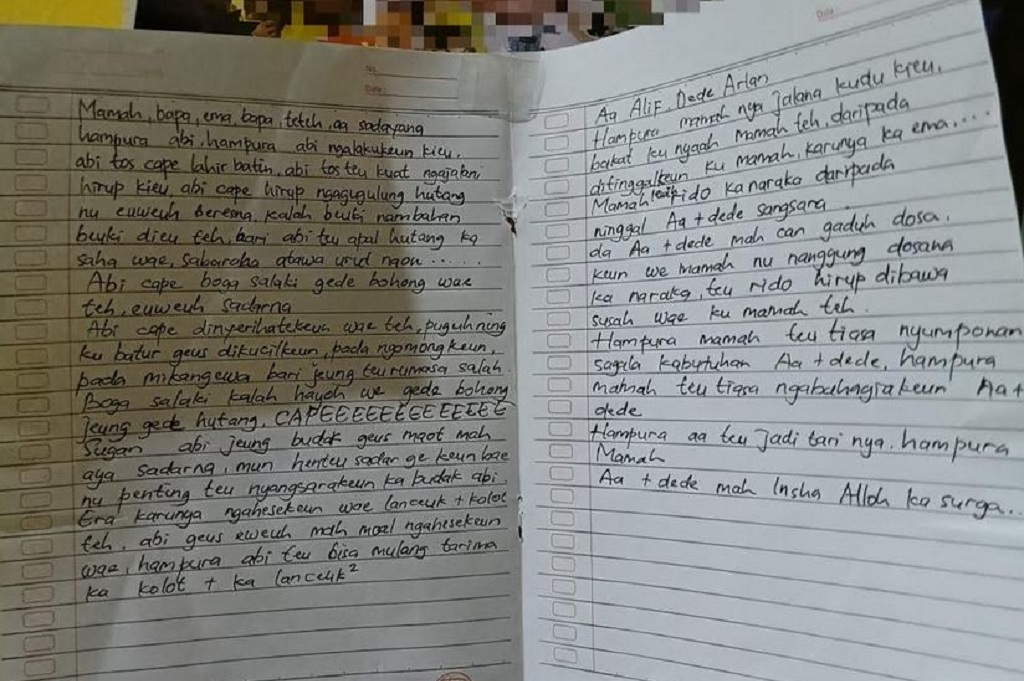 No.
Date:
Mamah, bapa, ema, bapa, teteh, aa sadayana
hampura abi, hampura abi ngalakukeun kieu.
abi tos cape lahir batin, abi tos teu kuat ngajalani
hirup kieu, abi cape hirup ngagugulung hutang
nu euweuh beresna, kalah beuki nambahan
beuki dieu teh, bari abi teu apal hutang ka
saha wae, sabaraha atawa urud naon ......
Abi cape boga salaki gede bohong wae
teh, euweuh sadarna
Abi cape dinyerihatekeun wae teh, puguh ning
ku batur geus dikucilkeun, pada ngomongkeun,
pada mikangewa bari jeung teu rumasa salah.
Boga salaki kalah hayoh we gede bohong
jeung gede hutang, CAPEEEEEEEEEEEEE
Sugan abi jeung budak geus maot mah
aya sadarna, mun henteu sadar ge keun bae
nu penting teu nyangsarakeun ka budak abi,
Era karunya ngahesekeun wae lanceuk + kolot
teh, abi geus euweuh mah moal ngahesekeun
wae, hampura abi teu bisa mulang tarima
ka kolot + ka lanceuk²
Date
Aa Alif Dede Arlan
Hampura mamah nya jalana kudu kieu,
bakat ku nyaah mamah teh, daripada
ditinggalkeun ku mamah, karunya ka ema....
Mamah rido ka naraka daripada
ninggal Aa + dede sangsara.
da Aa + dede mah can gaduh dosa,
keun we mamah nu nanggung dosana
ka naraka, teu rido hirup dibawa
susah wae ku mamah teh.
Hampura mamah teu tiasa nyumponan
sagala kabutuhan Aa + dede, hampura
mamah teu tiasa ngabahagiakeun Aa +
dede
Hampura aa teu jadi tari nya. hampura
Mamah
Aa + dede mah Insha Alloh ka surga..